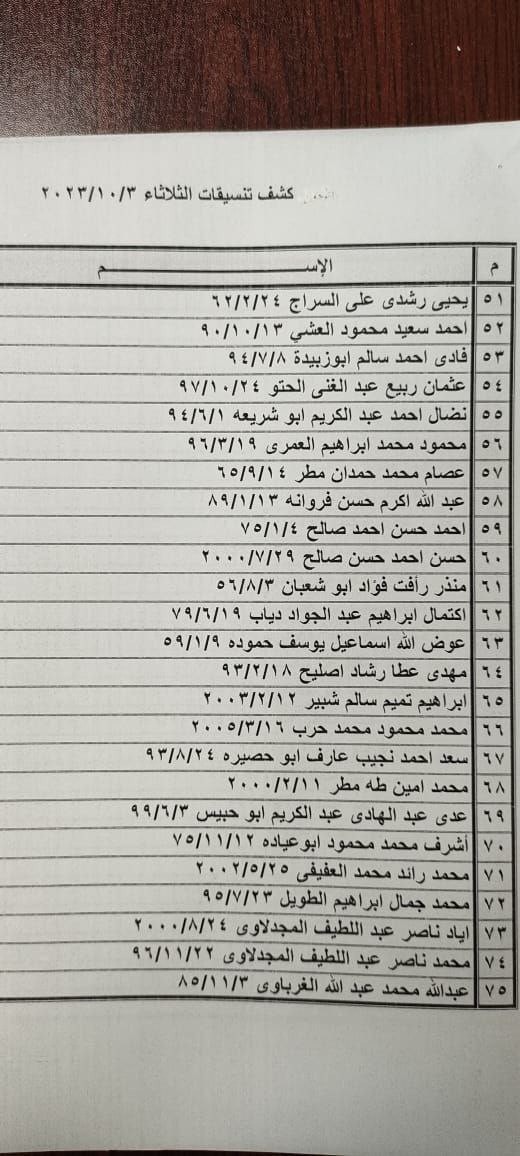 كشف تنسيقات الثلاثاء ٢٠٢٣/١٠/٣
م الإســـــــــم
٥١ يحيى رشدى على السراج ٦٢/٢/٢٤
٥٢ احمد سعيد محمود العشي ٩٠/١٠/١٣
٥٣ فادى احمد سالم ابوزبيدة ٩٤/٧/٨
٥٤ عثمان ربيع عبد الغنى الحتو ٩٧/١٠/٢٤
٥٥ نضال احمد عبد الكريم ابو شريعه ٩٤/٦/١
٥٦ محمود محمد ابراهيم العمرى ٩٦/٣/١٩
٥٧ عصام محمد حمدان مطر ٦٥/٩/١٤
٥٨ عبد الله اكرم حسن فروانه ٨٩/١/١٣
٥٩ احمد حسن احمد صالح ٧٥/١/٤
٦٠ حسن احمد حسن صالح ٢٠٠٠/٧/٢٩
٦١ منذر رأفت فؤاد ابو شعبان ٥٦/٨/٣
٦٢ اكتمال ابراهيم عبد الجواد دياب ٧٩/٦/١٩
٦٣ عوض الله اسماعيل يوسف حموده ٥٩/١/٩
٦٤ مهدى عطا رشاد اصليح ٩٣/٢/١٨
٦٥ ابراهيم تميم سالم شبير ٢٠٠٣/٢/١٢
٦٦ محمد محمود محمد حرب ٢٠٠٥/٣/١٦
٦٧ سعد احمد نجيب عارف ابو حصيره ٩٣/٨/٢٤
٦٨ محمد امين طه مطر ٢٠٠٠/٢/١١
٦٩ عدى عبد الهادى عبد الكريم ابو حبيس ٩٩/٦/٣
٧٠ أشرف محمد محمود ابوعياده ٧٥/١١/١٢
٧١ محمد رائد محمد العفيفى ٢٠٠٢/٥/٢٥
٧٢ محمد جمال ابراهيم الطويل ٩٥/٧/٢٣
٧٣ اياد ناصر عبد اللطيف المجدلاوى ٢٠٠٠/٨/٢٤
٧٤ محمد ناصر عبد اللطيف المجدلاوى ٩٦/١١/٢٢
٧٥ عبدالله محمد عبد الله الغرباوى ٨٥/١١/٣